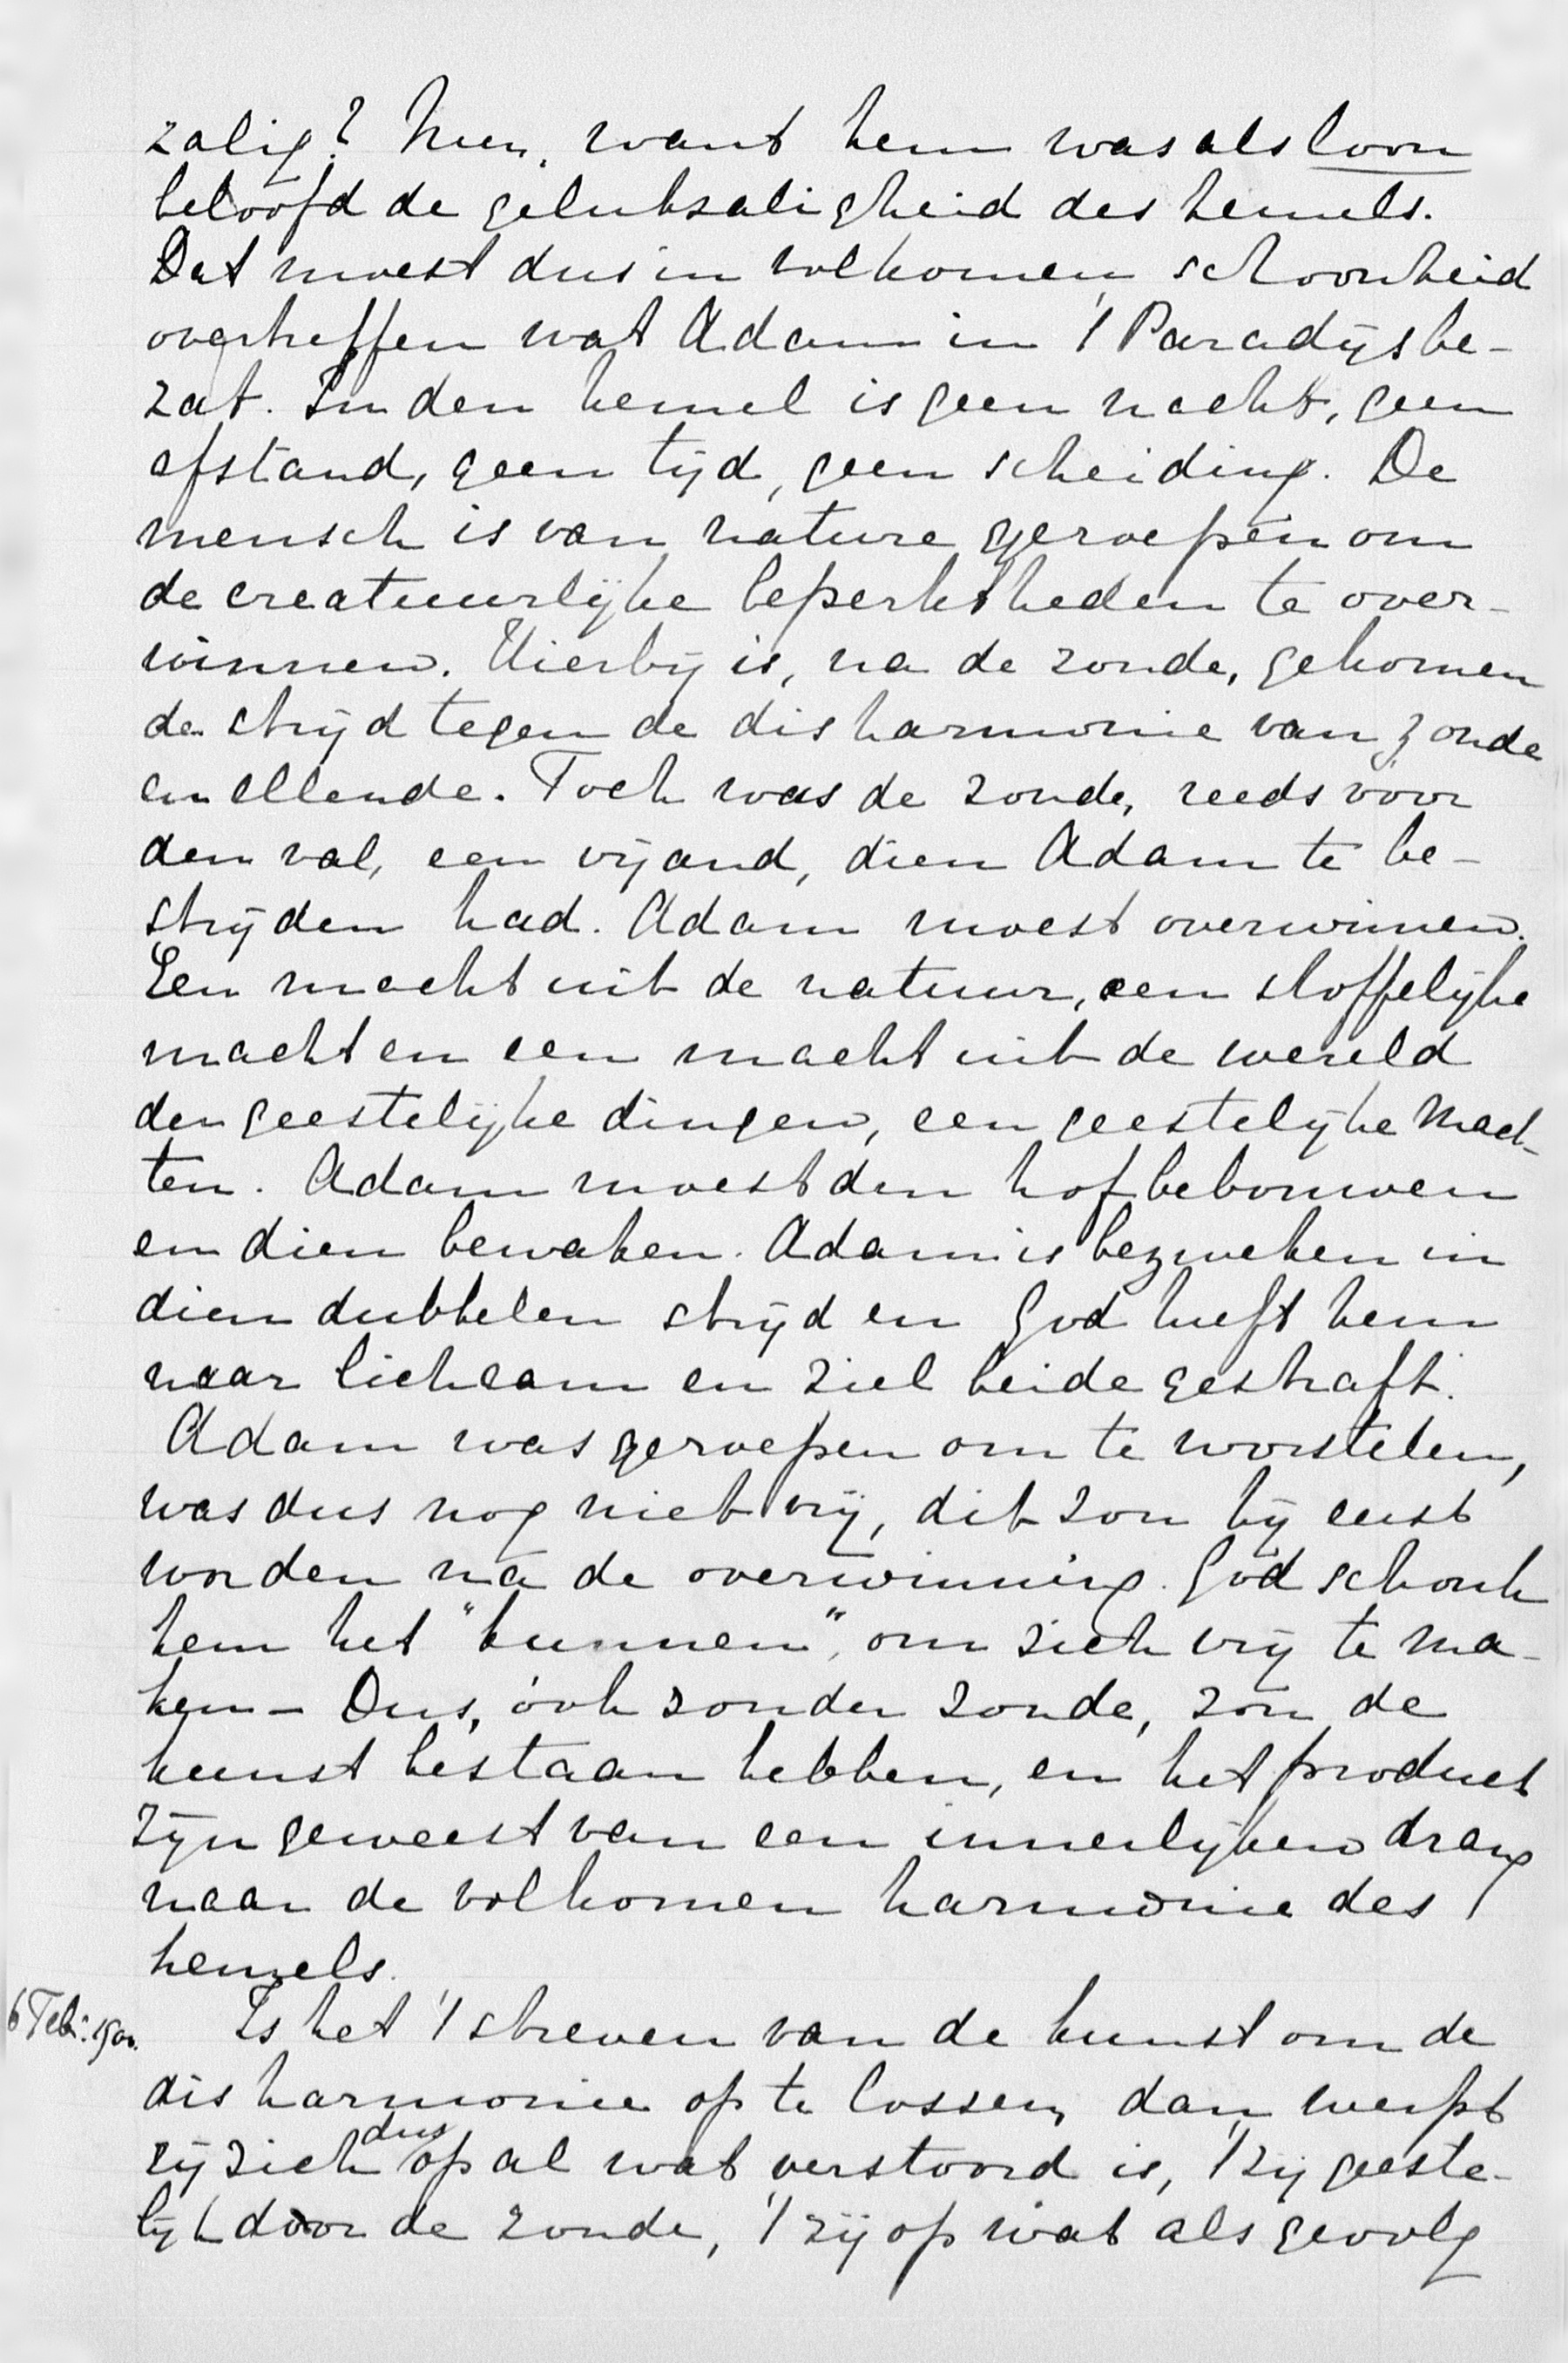 zalig? Neen, want hem was als loon
beloofd de gelukzaligheid des hemels.
Dat moest dus in volkomen schoonheid
overtreffen wat Adam in 't Paradijs be-
zat. In den hemel is geen nacht, geen
afstand, geen tijd, geen scheiding. De
mensch is van nature geroepen om
de creatuurlijke beperktheden te over-
winnen. Hierbij is, na de zonde, gekomen
de strijd tegen de disharmonie van zonde
en ellende. Toch was de zonde, reeds vóór
den val, een vijand, dien Adam te be-
strijden had. Adam moest overwinnen.
Een macht uit de natuur, een stoffelijke
macht en een macht uit de wereld
der geestelijke dingen, een geestelijke mach-
ten. Adam moest den hof bebouwen
en dien bewaken. Adam is bezweken in
dien dubbelen strijd en God heeft hem
naar lichaam en ziel beide gestraft.
Adam was geroepen om te worstelen,
was dus nog niet vrij, dit zou hij eerst
worden ná de overwinning. God schonk
hem het "kunnen", om zich vrij te ma-
ken - Dus, óok zonder zonde, zou de
kunst bestaan hebben, en het product
zijn geweest van een innerlijken drang
naar de volkomen harmonie des
hemels.
6 Feb: 1900. Is het 't streven van de kunst om de
disharmonie op te lossen, dan werpt
zij zich dus op al wat verstoord is, 't zij geeste-
lijk door de zonde, 't zij op wat als gevolg